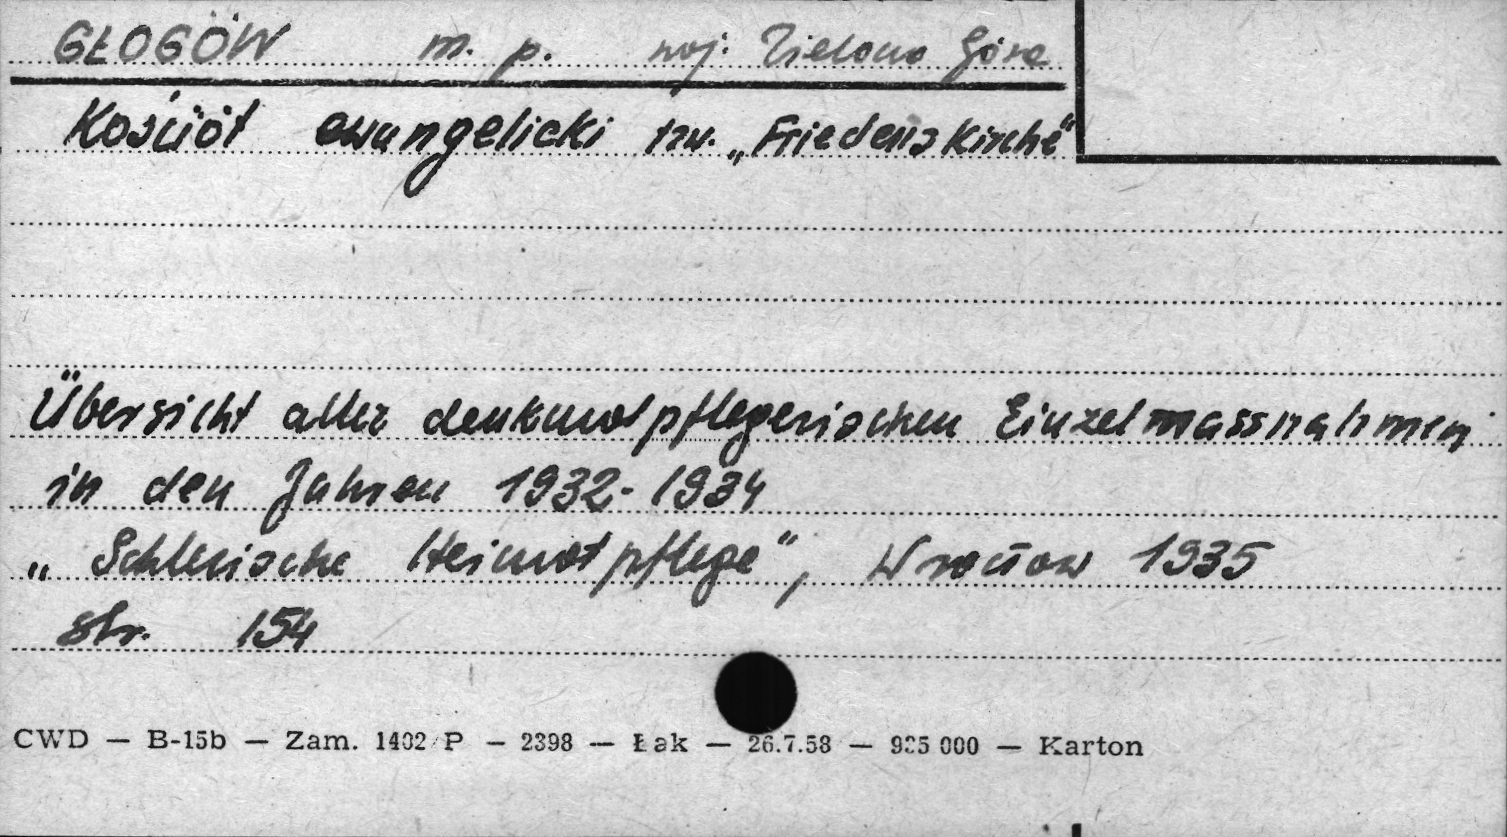 GŁOGÓW m. p. woj. Zielona Góra
Kościół ewangelicki tzw. „Friedenskirche"
Übersicht aller denkmalpflegerischen Einzelmassnahmen
in den Jahren 1932-1934
„Schlesische Heimatpflege", Wrocław 1935
str. 154
CWD — B-15b — Zam. 1402/P — 2398 — Łak — 26.7.58 — 925 000 — Karton